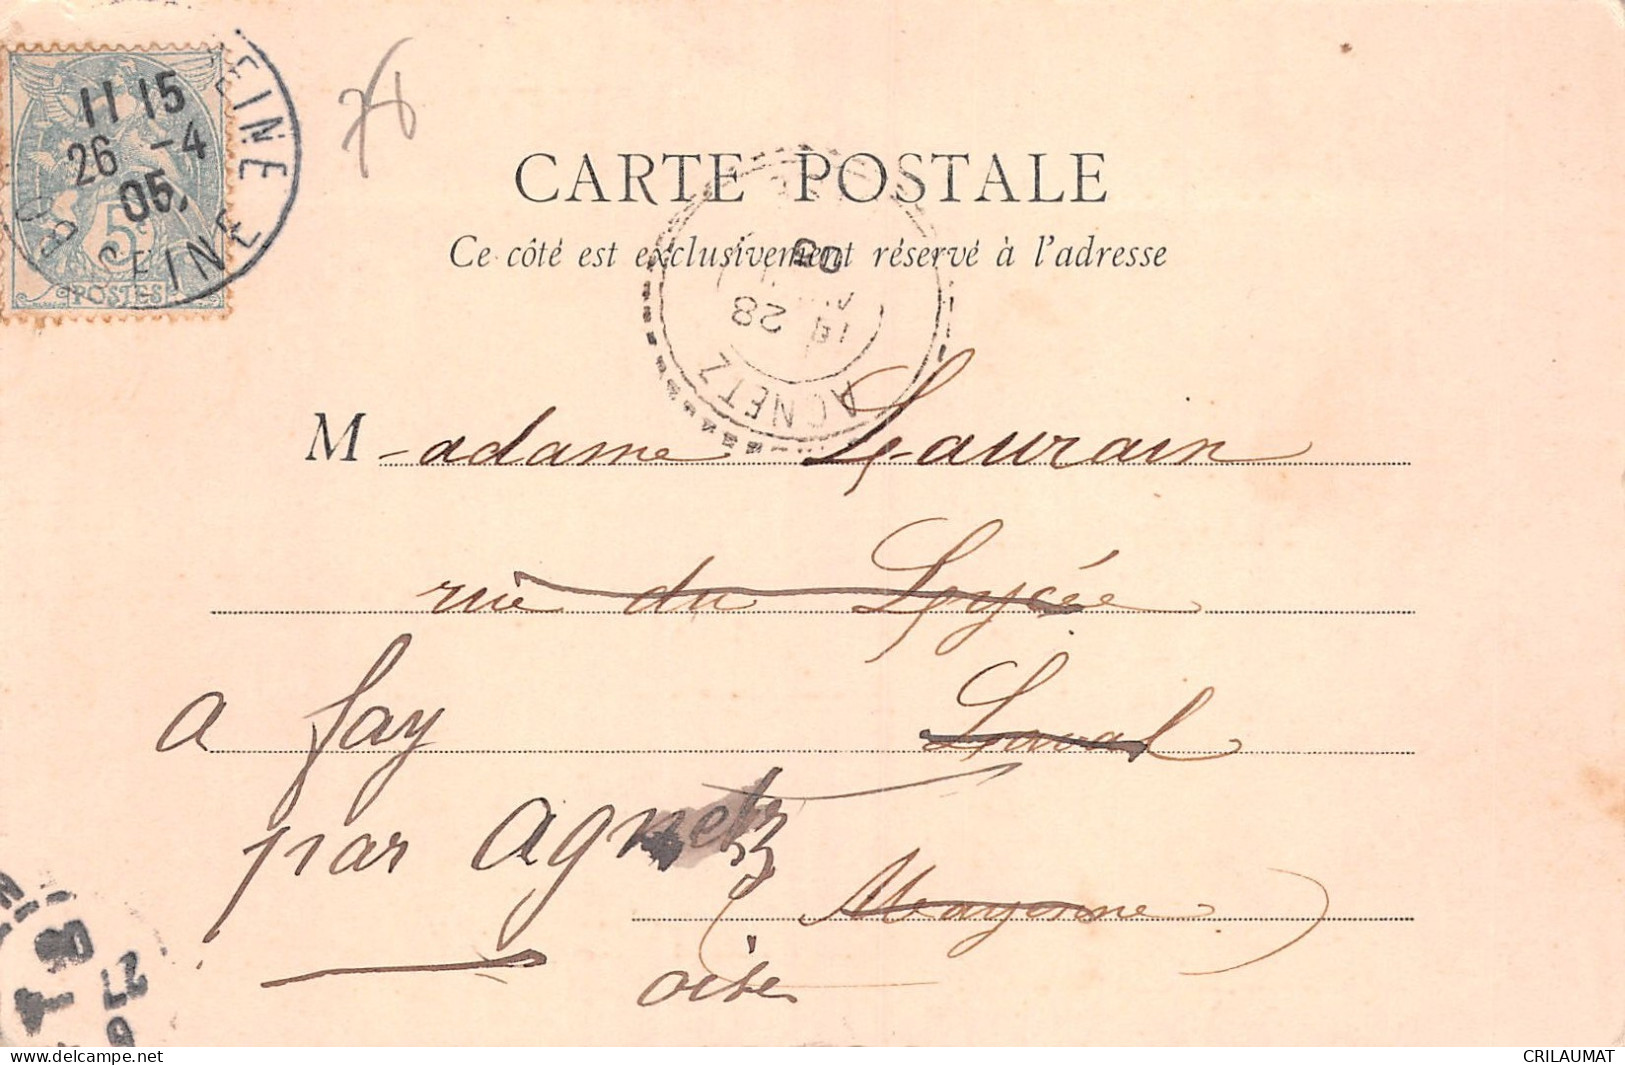 11 15
26 -4
05
EINE
SEINE
5c
POSTES
78
CARTE POSTALE
Ce côté est exclusivement réservé à l'adresse
19
28
05
AGNETZ
Madame Laurain
rue du Lycée
a fay Laval
par agnetz
(Mayenne)
oise
27
CRILAUMAT